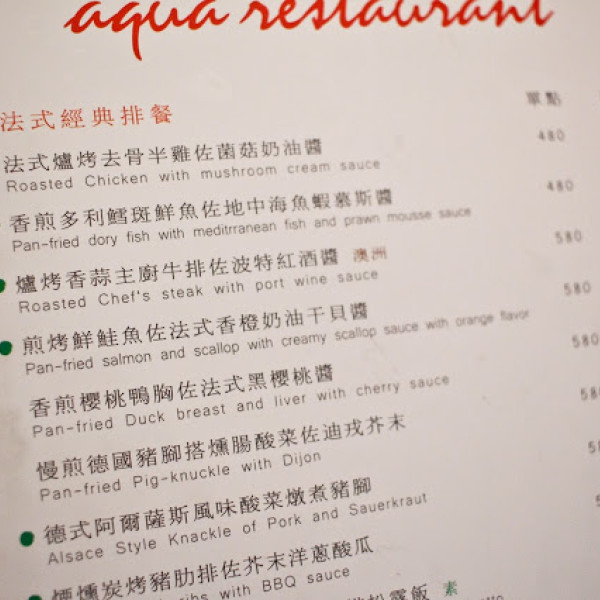 aqua restaurant
法式經典排餐 單點
法式爐烤去骨半雞佐菌菇奶油醬 480
Roasted Chicken with mushroom cream sauce
香煎多利鱈斑鮮魚佐地中海魚蝦慕斯醬 480
Pan-fried dory fish with meditrranean fish and prawn mousse sauce
爐烤香蒜主廚牛排佐波特紅酒醬 澳洲 580
Roasted Chef's steak with port wine sauce
煎烤鮮鮭魚佐法式香橙奶油干貝醬 580
Pan-fried salmon and scallop with creamy scallop sauce with orange flavor
香煎櫻桃鴨胸佐法式黑櫻桃醬 580
Pan-fried Duck breast and liver with cherry sauce
慢煎德國豬腳搭燻腸酸菜佐迪戎芥末
Pan-fried Pig-knuckle with Dijon
德式阿爾薩斯風味酸菜燉煮豬腳
Alsace Style Knackle of Pork and Sauerkraut
煙燻炭烤豬肋排佐芥末洋蔥酸瓜
ribs with BBQ sauce
松露飯 素